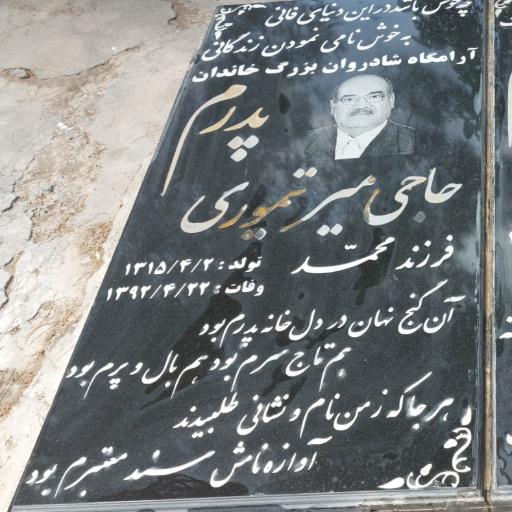 چه خوش باشد در این دنیای فانی
به خوش نامی نمودن زندگانی
آرامگاه شادروان بزرگ خاندان
پدرم
حاجی میر تیموری
فرزند محمد
تولد : ۱۳۱۵/۴/۲
وفات : ۱۳۹۲/۴/۲۲
آن گنج نهان در دل خانه پدرم بود
هم تاج سرم بود هم بال و پرم بود
هر جا که ز من نام و نشانی طلبیدند
آوازه نامش سند معتبرم بود